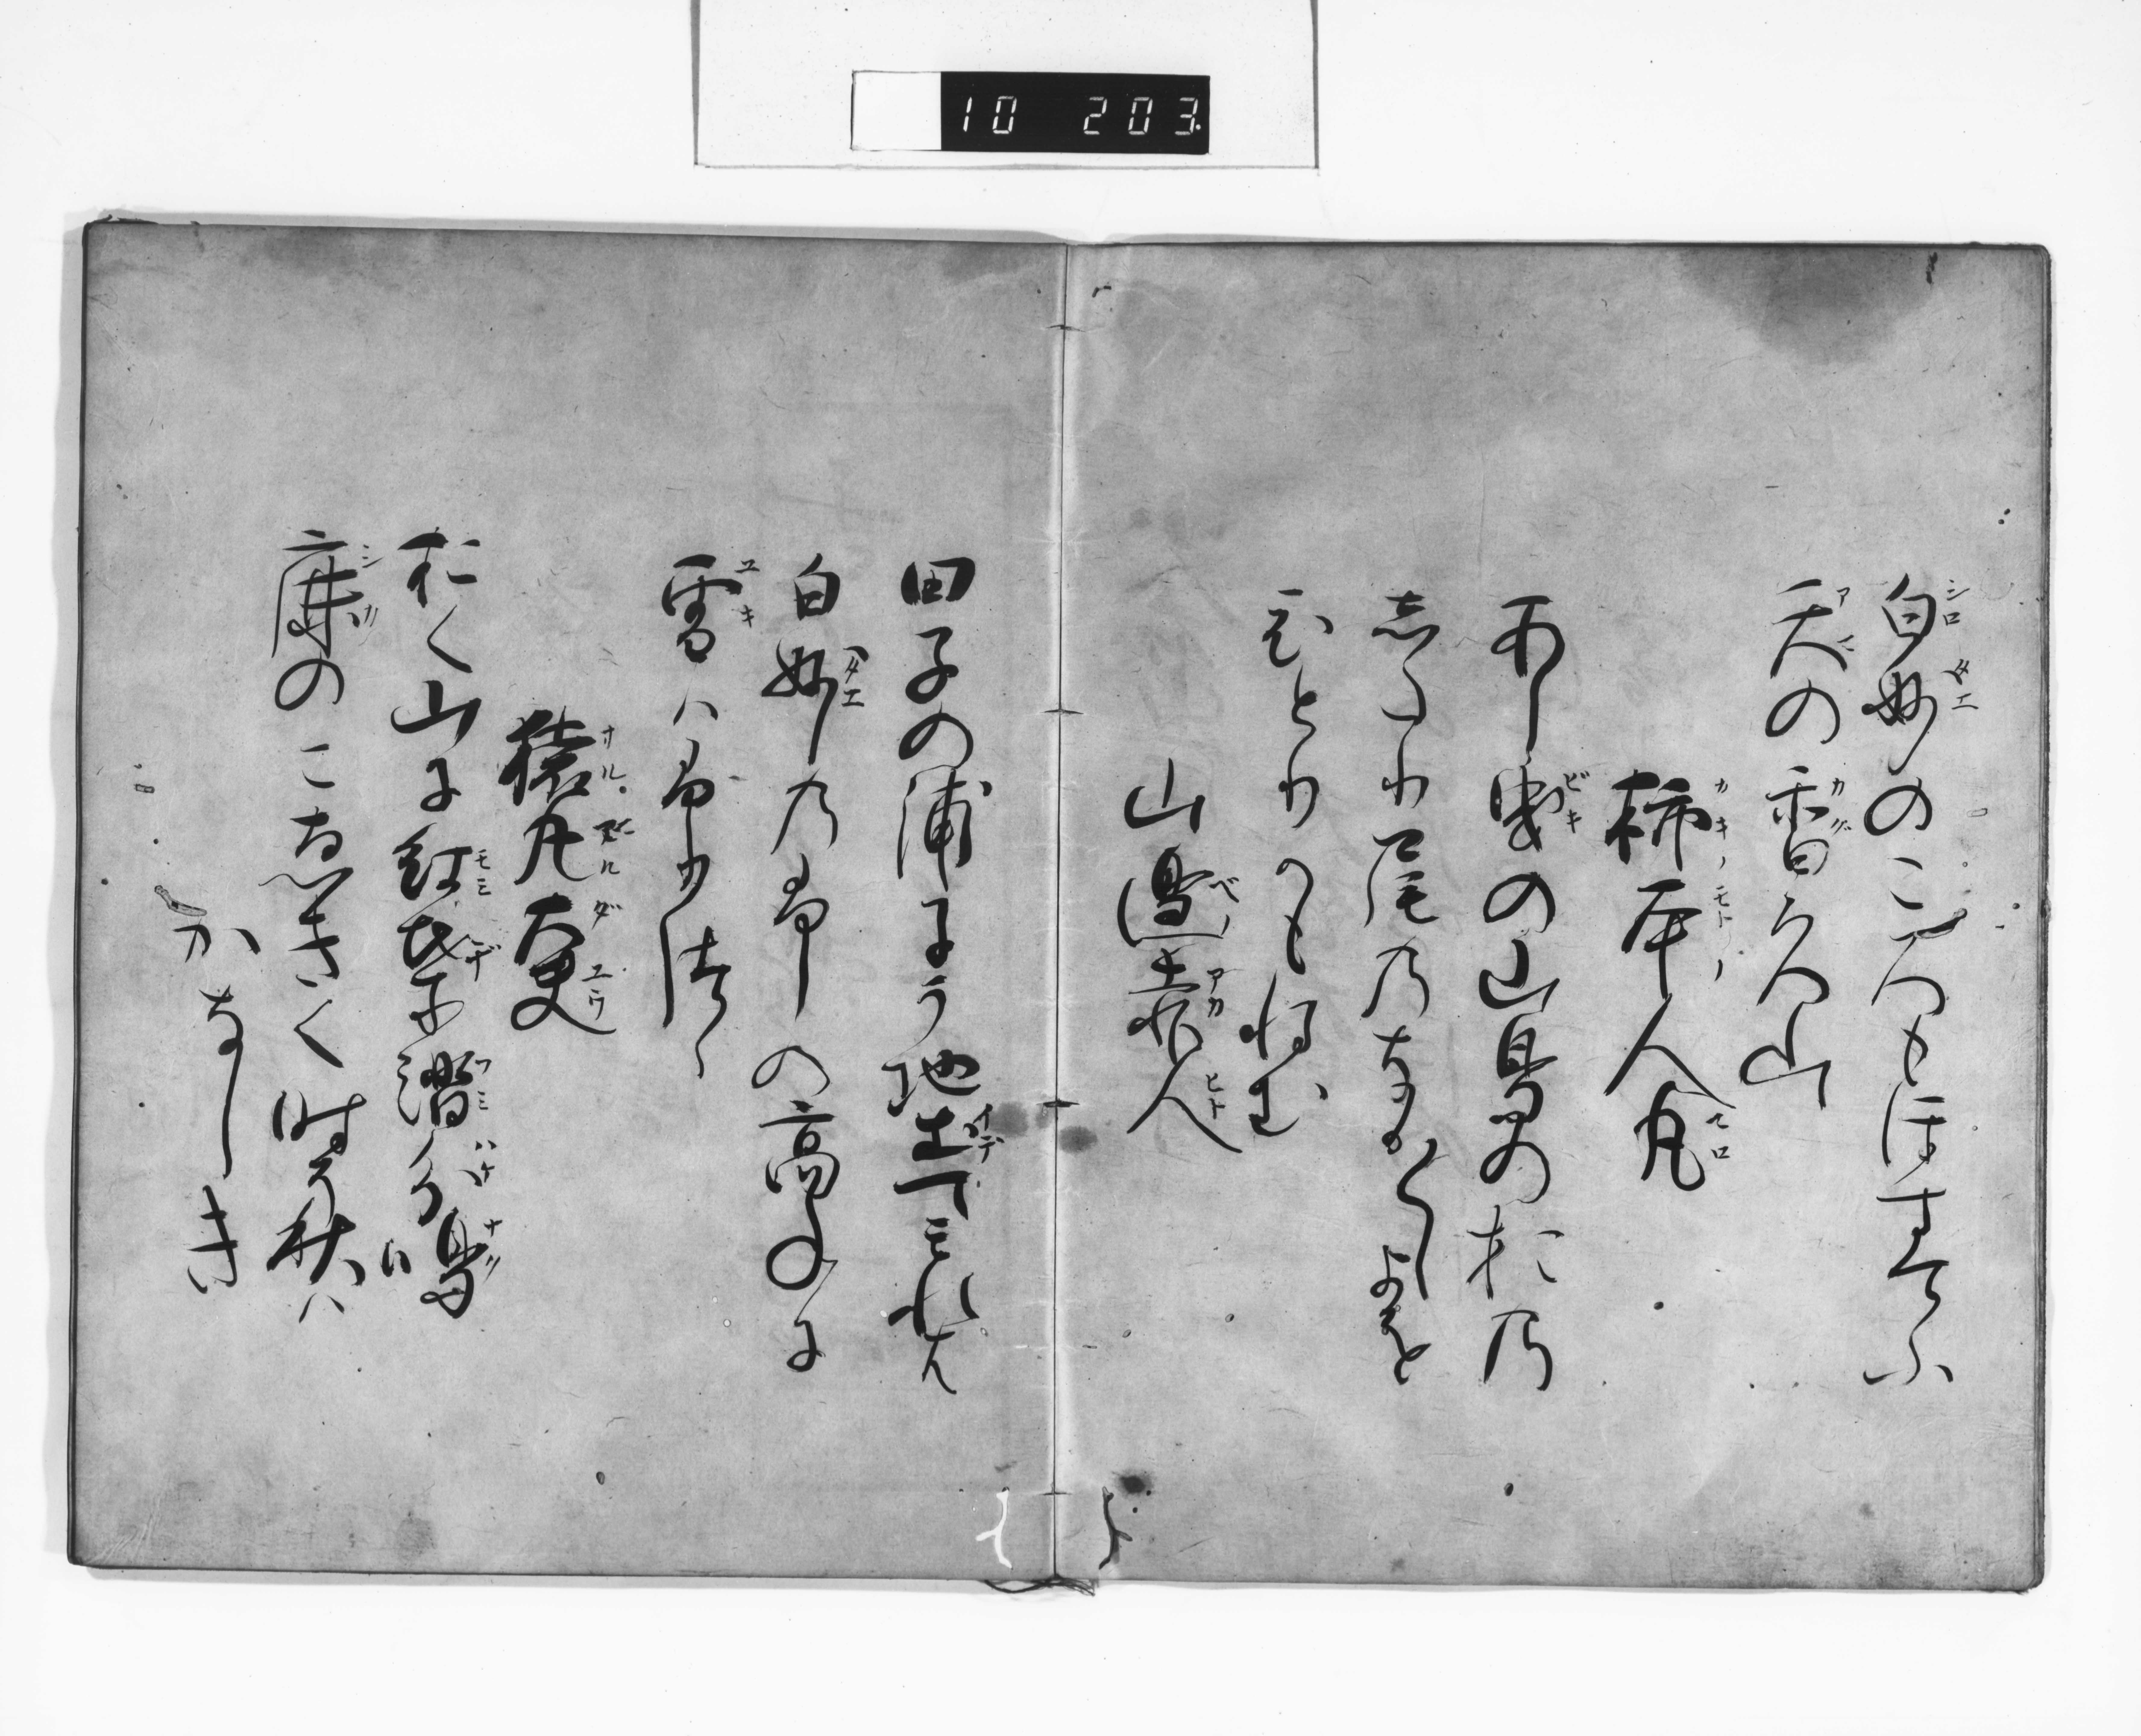 10 203
白妙のころもほすてふ
天の香久山
柿本人丸
あし曳の山鳥の於乃
志たり尾乃なか〱しよを
ひとりかも祢む
山邊赤人
田子の浦にうち出てみれハ
白妙乃ふしの高ねに
雪ハふりつゝ
猿丸大夫
おく山に紅葉ふミ分鳴
鹿のこゑきく時そ秋ハ
かなしき